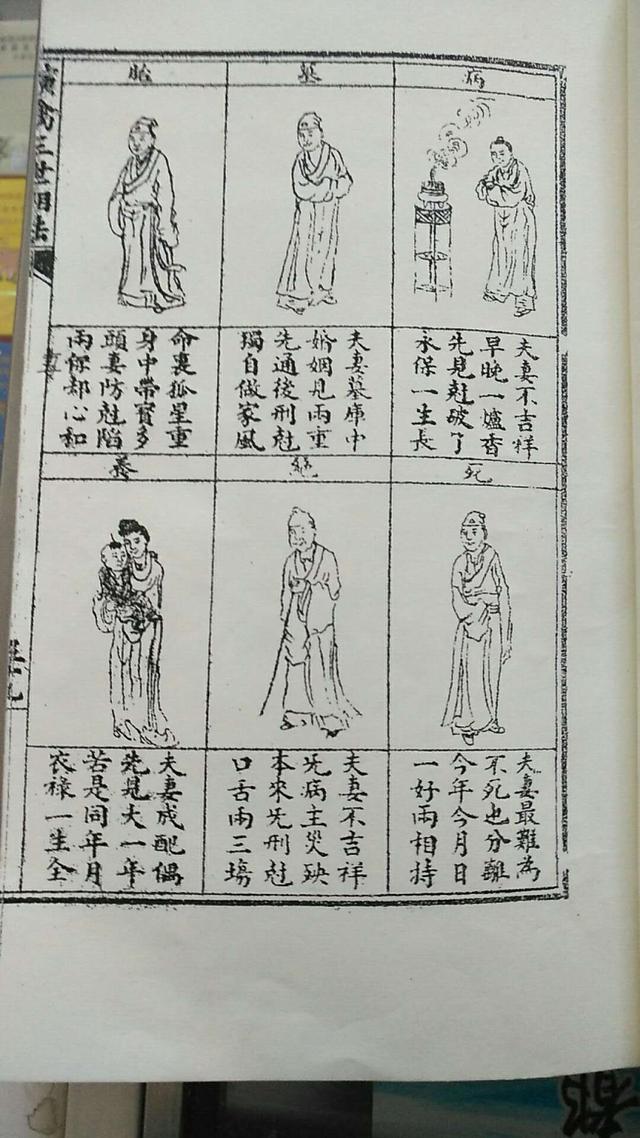 病
夫妻不吉祥
早晚一爐香
先見尅破了
永保一生長
墓
夫妻墓庫中
婚姻見兩重
先通後刑尅
獨自做家風
胎
命裏孤星重
身中帶寶多
頭妻防尅陷
兩你却心和
死
夫妻最難為
不死也分離
今年今月日
一好兩相持
絕
夫妻不吉祥
先病主災殃
本來先刑尅
口舌兩三場
養
夫妻成配偶
先見大一年
若是同年月
衣祿一生全
演禽三世相法